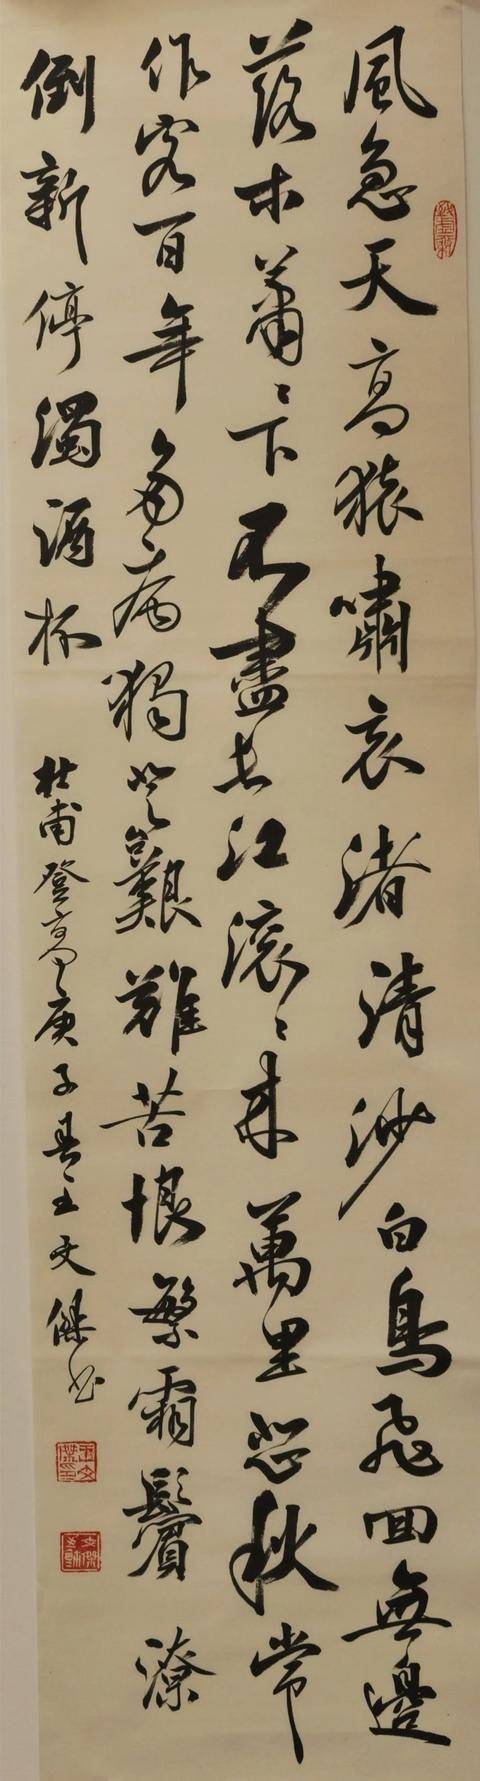 風急天高猿嘯哀渚清沙白鳥飛回無邊
落木蕭〻下不盡長江滾〻來萬里悲秋常
作客百年多病獨登台艱難苦恨繁霜鬢潦
倒新停濁酒杯
杜甫登高庚子王文傑書